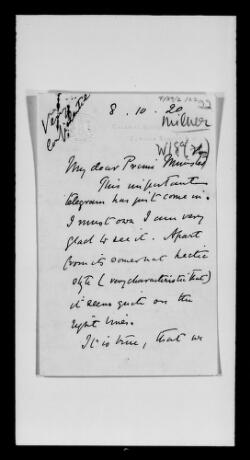 Very
Confidential
8. 10. 20
Milner
My dear Prime Minister
This important
telegram has just come in.
I must own I am very
glad to see it. Apart
from its somewhat hectic
style (very characteristic that)
it seems quite on the
right lines.
It is true, that we